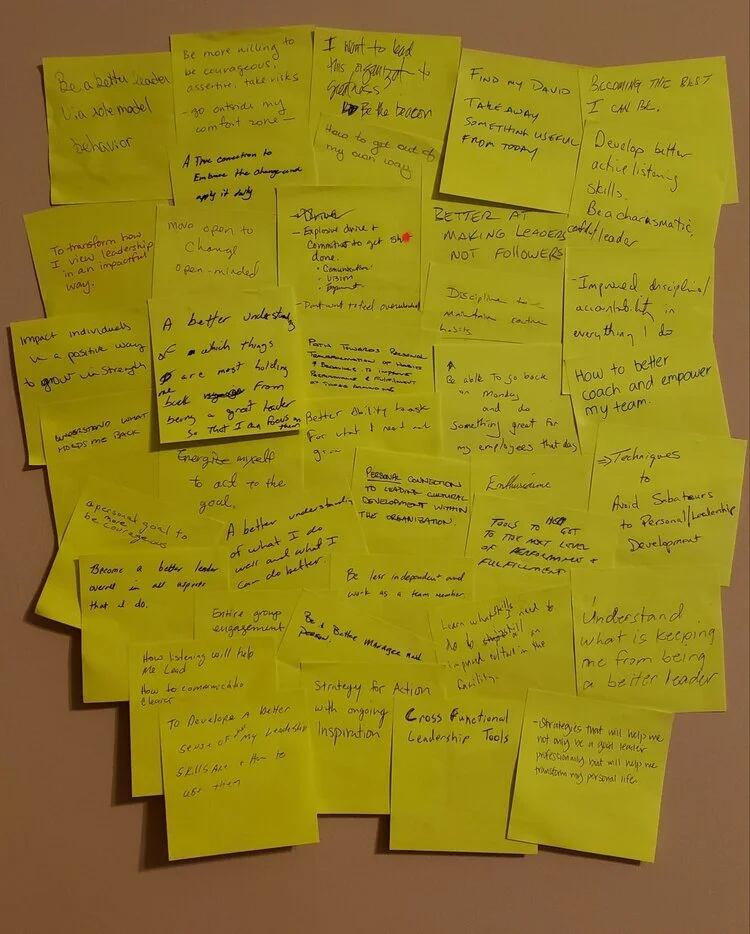 Be a better leader
Via role model
behavior
Be more willing to
be courageous,
assertive, take risks
- go outside my
comfort zone -
A True connection to
Embrace the change and
apply it daily
I want to lead
this organization to
greatness
Be the beacon
How to get out of
my own way
FIND MY DAVID
TAKE AWAY
SOMETHING USEFUL
FROM TODAY
BECOMING THE BEST
I CAN BE.
Develop better
active listening
skills.
Be a charasmatic,
leader
To transform how
I view leadership
in an impactful
way.
More open to
Change
open-minded
- Explosive drive +
Commitment to get
done.
• Communication
• Vision
- Don't want to feel overwhelmed
BETTER AT
MAKING LEADERS
NOT FOLLOWERS
Discipline to
maintain routine
habits
- Improved discipline/
accountability in
everything I do
Impact individuals
in a positive way
to grow in strength
A better understanding
of which things
are most holding
me back from
being a great leader
so that I can focus on
them
PATH TOWARDS PERSONAL
TRANSFORMATION OF HABITS
PERFORMANCE & FULFILLMENT
Be able to go back
on Monday
and do
something great for
my employees that day
How to better
coach and empower
my team.
UNDERSTAND WHAT
HOLDS ME BACK
Energize myself
to act to the
goal.
Better Ability to ask
For what I need and
grow
PERSONAL CONNECTION
TO LEADING CULTURAL
DEVELOPMENT WITHIN
THE ORGANIZATION.
Enthusiasm
⇒ Techniques
to
Avoid Sabateurs
to Personal/Leadership
Development
a personal goal to
be more
courageous
A better understanding
of what I do
well and what I
can do better.
TOOLS TO GET
TO THE NEXT LEVEL
OF PERFORMANCE &
FULFILLMENT
Become a better leader
overall in all aspects
that I do.
Be less independent and
work as a team member.
Entire group
engagement
Be a Better Manager and
Person.
Learn what skills need to
in
improve culture in the
facility.
Understand
what is keeping
me from being
a better leader
How listening will help
Me Lead
How to communicate
Clearer
Strategy for Action
with ongoing
Inspiration
Cross Functional
Leadership Tools
To Develope A better
sense of my Leadership
skills Are + How to
use them
- Strategies that will help me
not only be a good leader
professionally but will help me
transform my personal life.